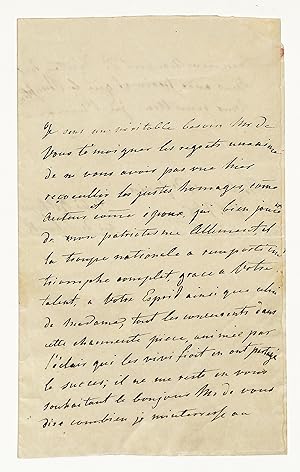 Je sens un véritable besoin Mr de
vous témoigner les regrets unanimes
de ne vous avoir pas vue hier
recoeullir les justes homages, comme
auteur et comme époux,
de mon patriotisme Allemant et
la troupe nationale a remporté un
triomphe complet grace a votre
talent, a Votre Esprit ainsi que celui
de madame, tout les concurents dans
cette charmente piece, animés par
l'éclair qui les vivifioit en ont partagé
le succes, il ne me reste en vous
souhaitant le bonjour Mr de vous
dire combien je m'interresse au